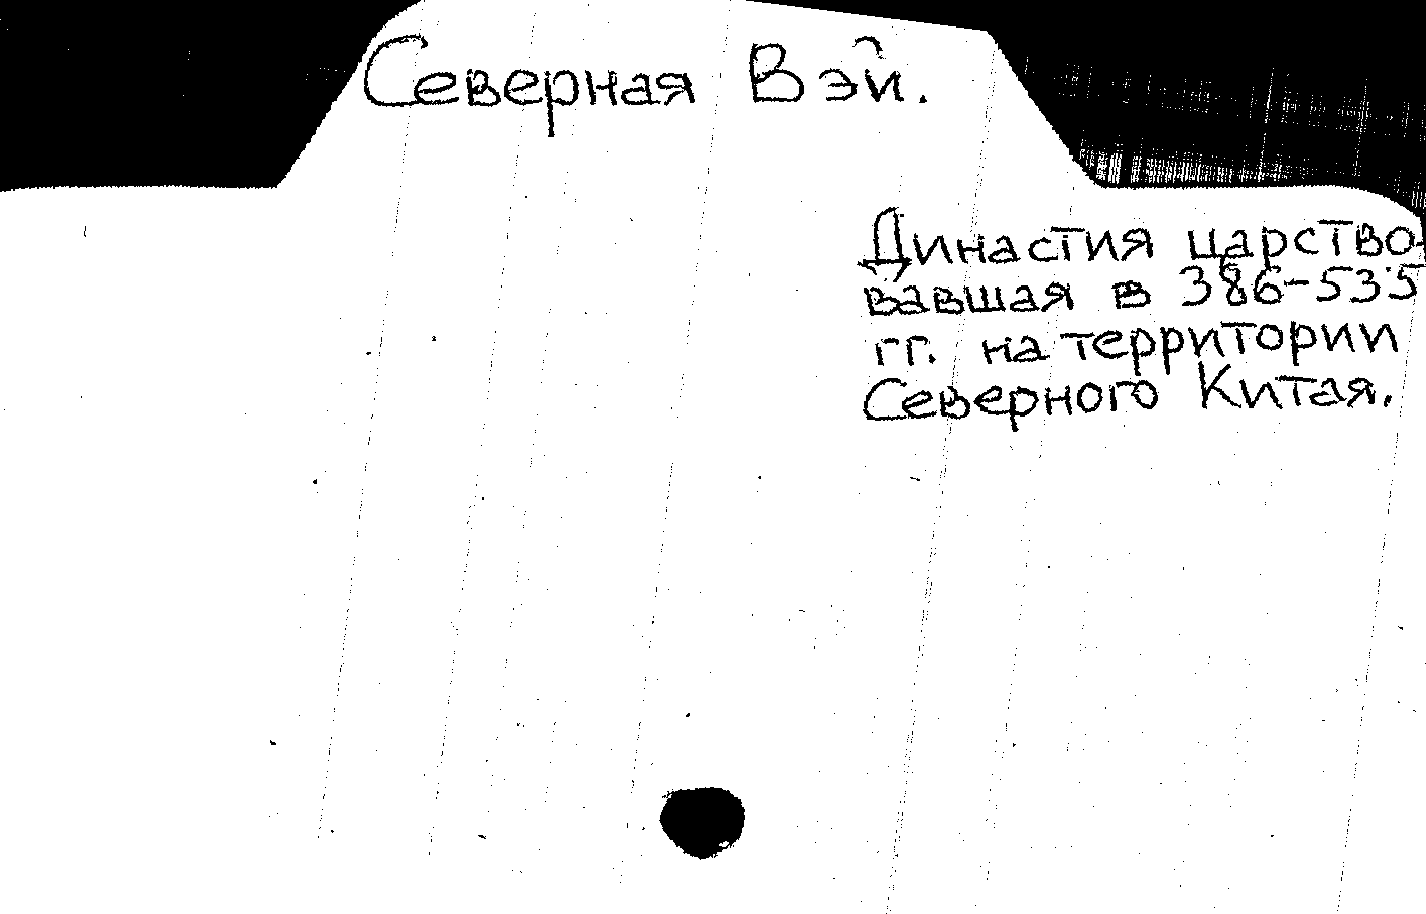 Северная Вэй.
Династия царство-
вавшая в 386-535
гг. на территории
Северного Китая.